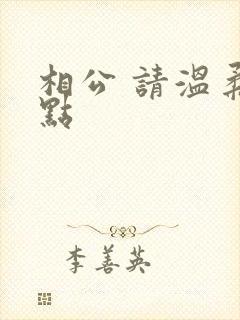 相公 請溫柔
點
李善英